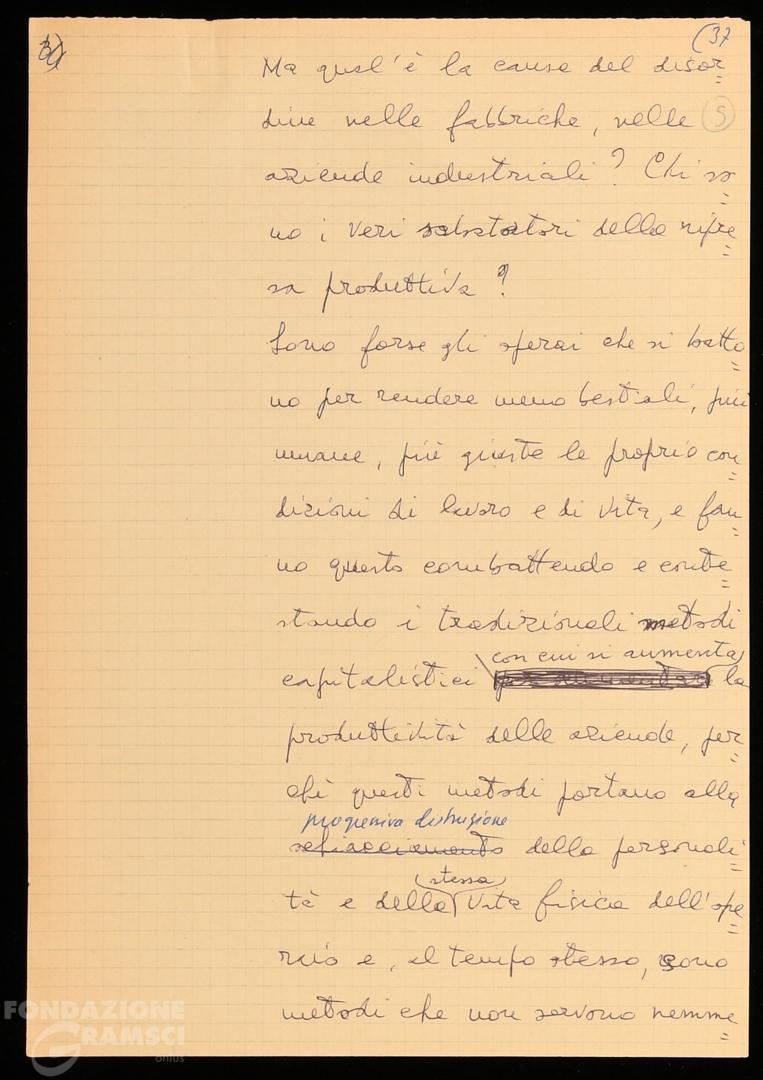 (37
Ma qual'è la causa del disor=
dine nelle fabbriche, nelle (5)
aziende industriali? Chi so=
no i veri sabotatori della ripre=
sa produttiva?
Sono forse gli operai che si batto=
no per rendere meno bestiali, più
umane, più giuste le proprio con=
dizioni di lavoro e di vita, e fan=
no questo combattendo e conte=
stando i tradizionali metodi
con cui si aumenta
capitalistici la
produttività delle aziende, per=
chè questi metodi portano alla
progressiva distruzione
schiacciamento della personali=
tà e della (stessa) vita fisica dell'ope=
raio e, al tempo stesso, sono
metodi che non servono nemme=
FONDAZIONE
GRAMSCI
onlus